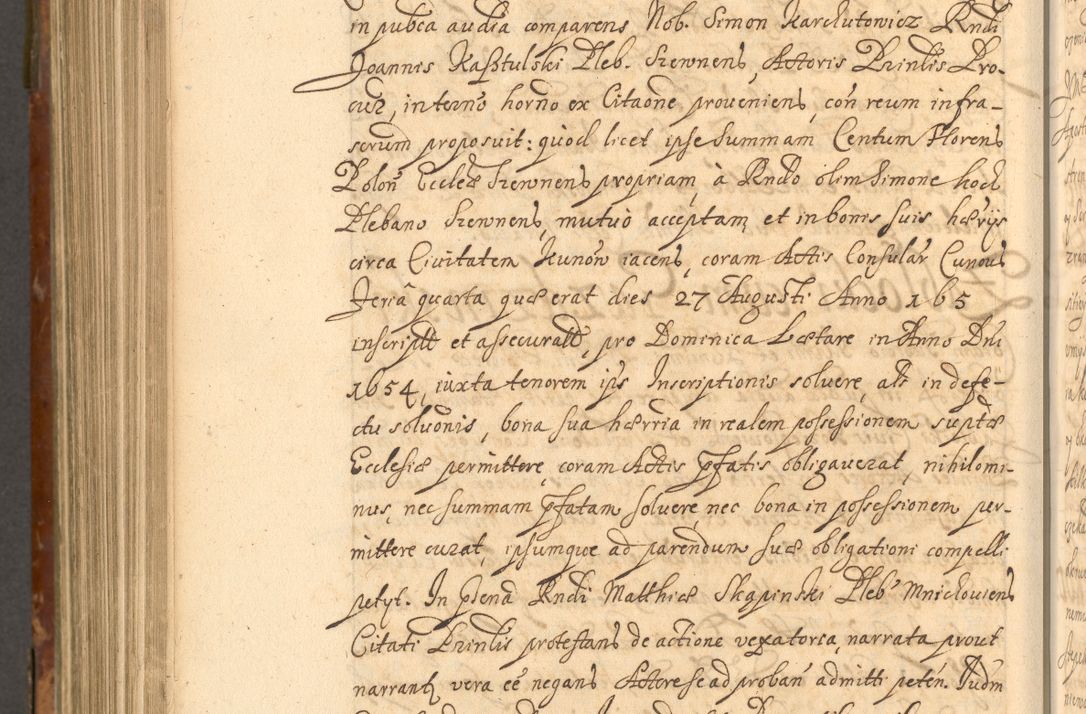 in pubca audia comparens Nob. Simon Karchutowicz Rndi
Joannis Kasztulski Pleb. Szewnens, Actoris Prinlis Pro-
cur, in termo horno ex Citaone proveniens, con reum infra-
scrum proposuit: quod licet ipse Summam Centum Florens
Polon Eccleæ Szewnens propriam, à Rndo olim Simone hoch
Plebano Szewnens, mutuo acceptam et in bonis suis hærijs
circa Civitatem Kunow iacens, coram Actis Consular Cunous
Feriâ quarta quæ erat dies 27 Augusti Anno 165
inscriptt et assecuratt, pro Dominica Lætare in Anno Dni
1654, iuxta tenorem ips Inscriptionis solvere, als in defe-
ctu solvonis, bona sua hærria in realem possessionem suptæ
Ecclesiæ permittere, coram Actis pfatis obligaverat, nihilomi-
nus, nec summam pfatam solvere, nec bona in possessionem per-
mittere curat, ipsumque ad parendum suæ obligationi compelli
petyt. In pntia Rndi Matthiæ Skapinski Pleb Mnichouiens
Citati Prinlis protestans de actione vexatoria, narrata prout
narrantr vera eê negans Actore se ad proban admitti peten. Judm